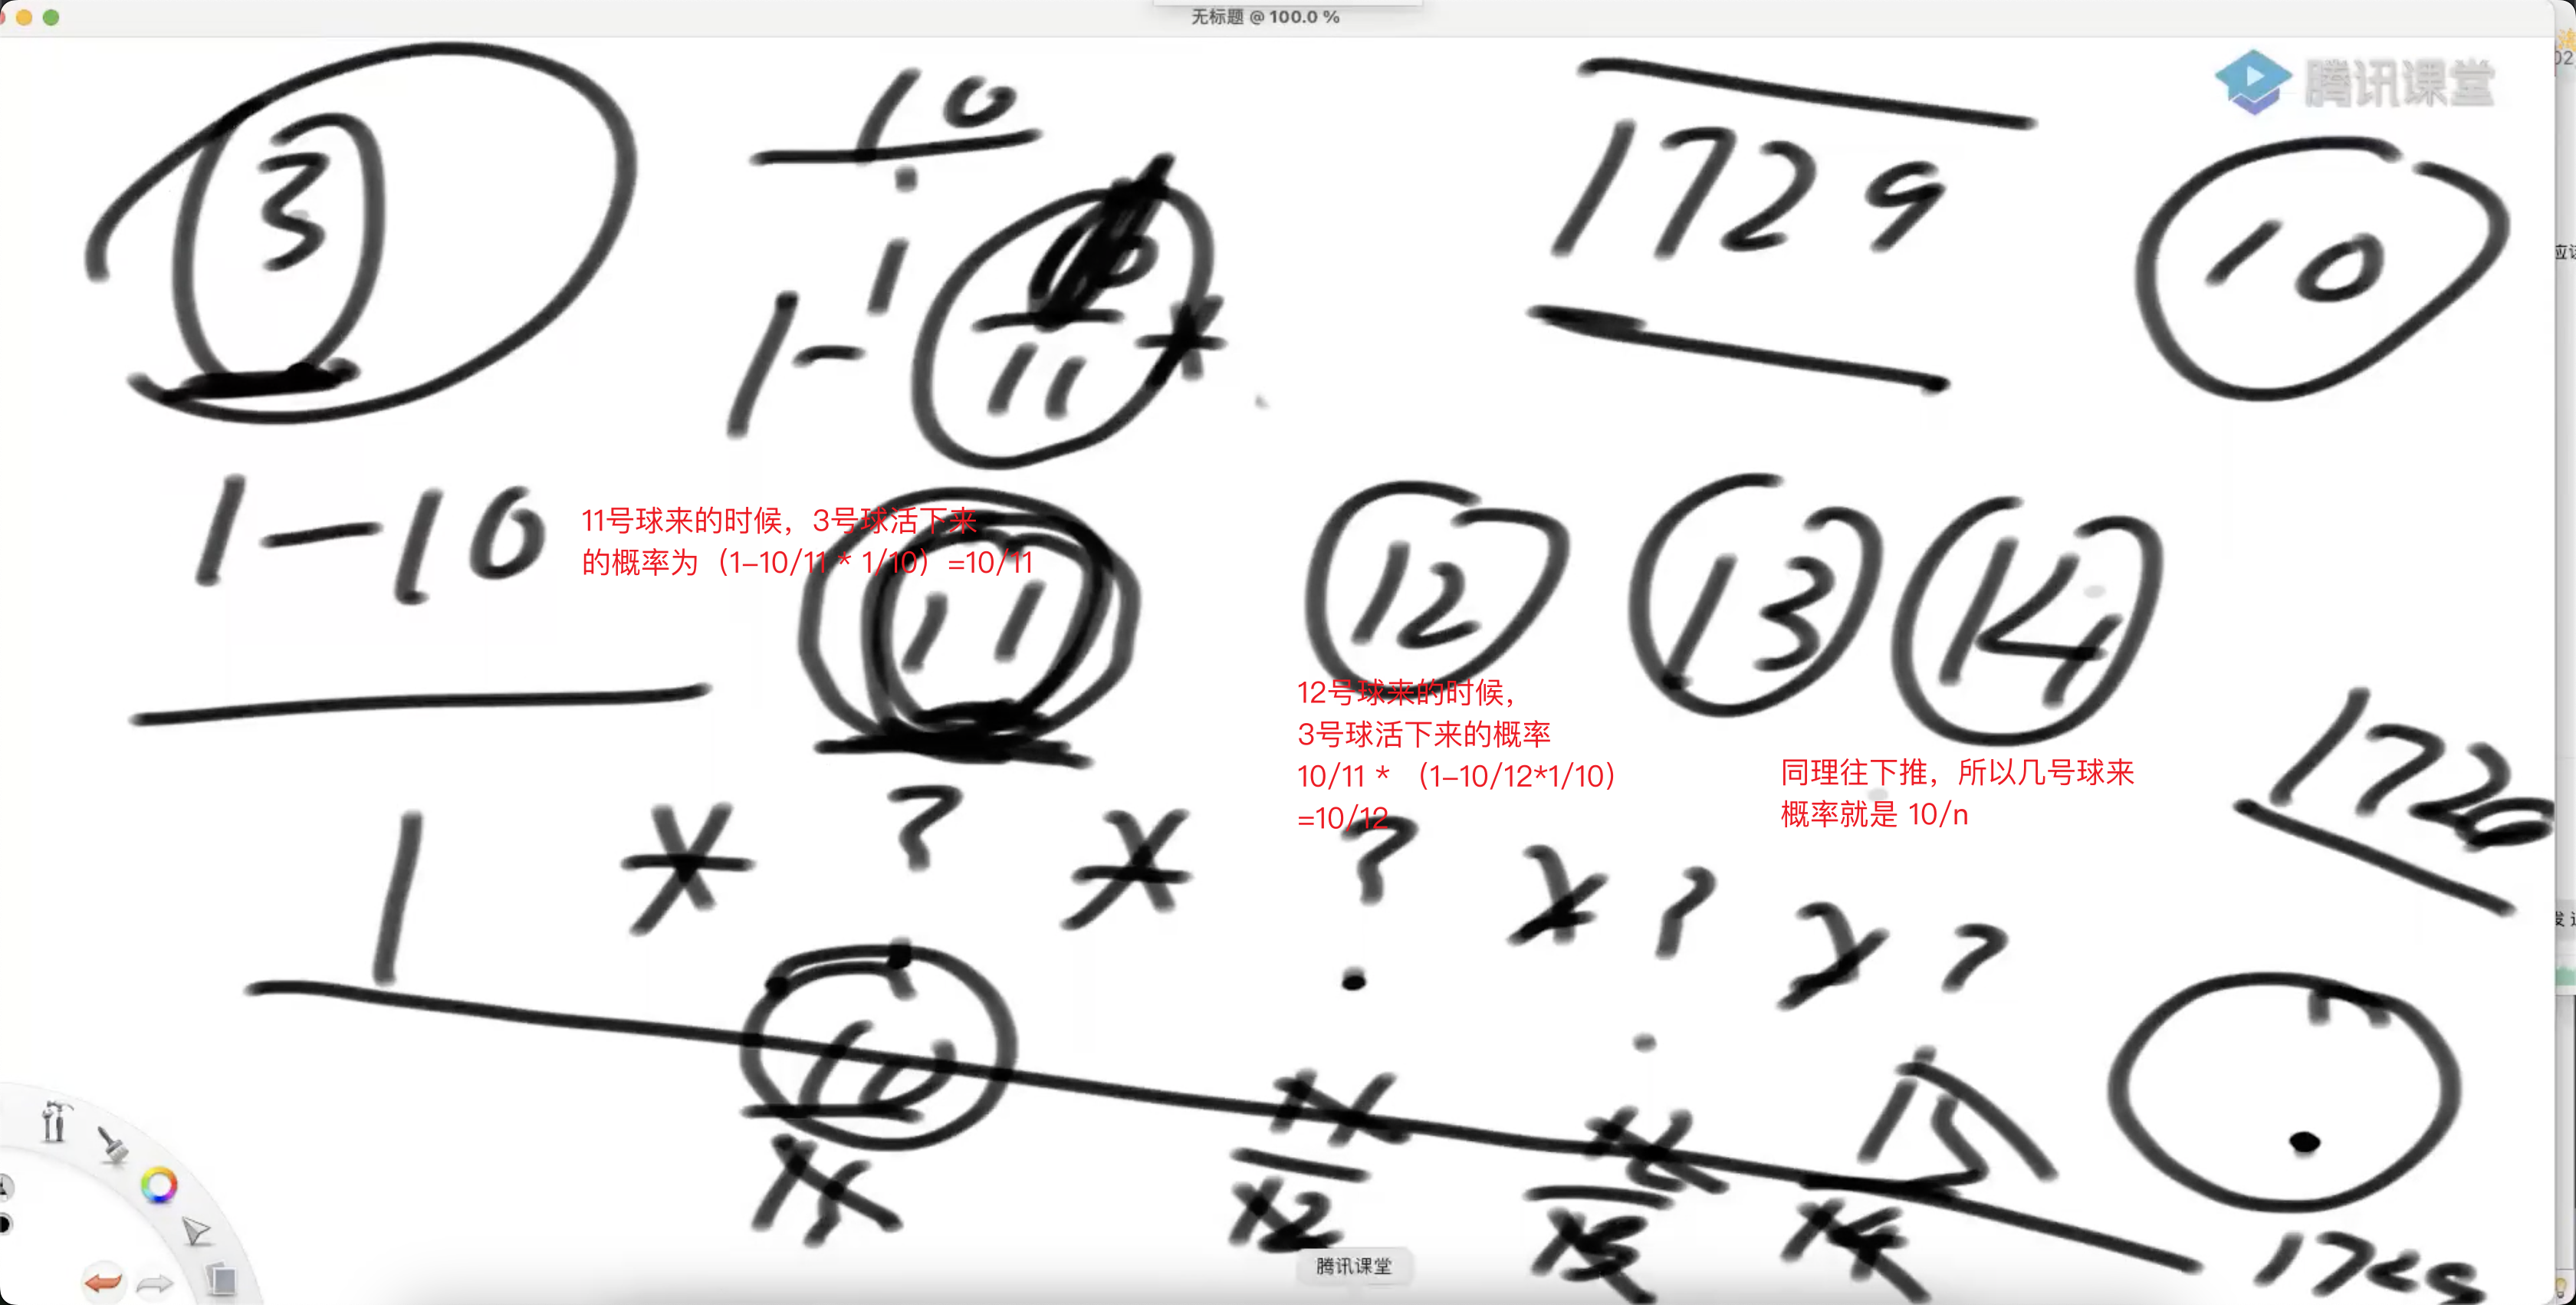 无标题 @ 100.0 %
腾讯课堂
3
10
1729
10
1-1
11
*
1-10
11号球来的时候，3号球活下来
的概率为（1-10/11 * 1/10）=10/11
11
12
13
14
12号球来的时候，
3号球活下来的概率
10/11 * （1-10/12*1/10）
=10/12
同理往下推，所以几号球来
概率就是 10/n
1729
1 * ? * ? * ? * ?
10
11
12
13
13
14
1729
腾讯课堂